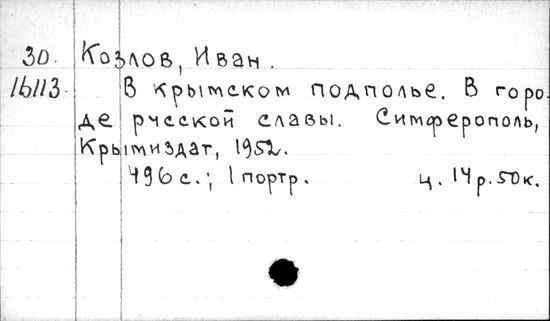 30. Козлов, Иван.
16113. В крымском подполье. В горо-
де русской славы. Симферополь,
Крымиздат, 1952.
496 с.; 1 портр. ц. 14 р. 50 к.